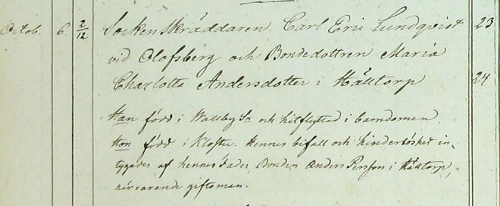 Octob. 6 2/12 Socken Skräddaren Carl Eric Lundqvist 23
vid Olofsberg och Bondedottren Maria
Charlotta Andersdotter i Hälltorp 24
Han född i Wallby Sn och hitflyttad i barndomen.
Hon född i Kloster. Hennes bifall och hinderlöshet in-
tygades af hennes Fader, Bonden Anders Persson i Hälltorp,
närvarande giftoman.